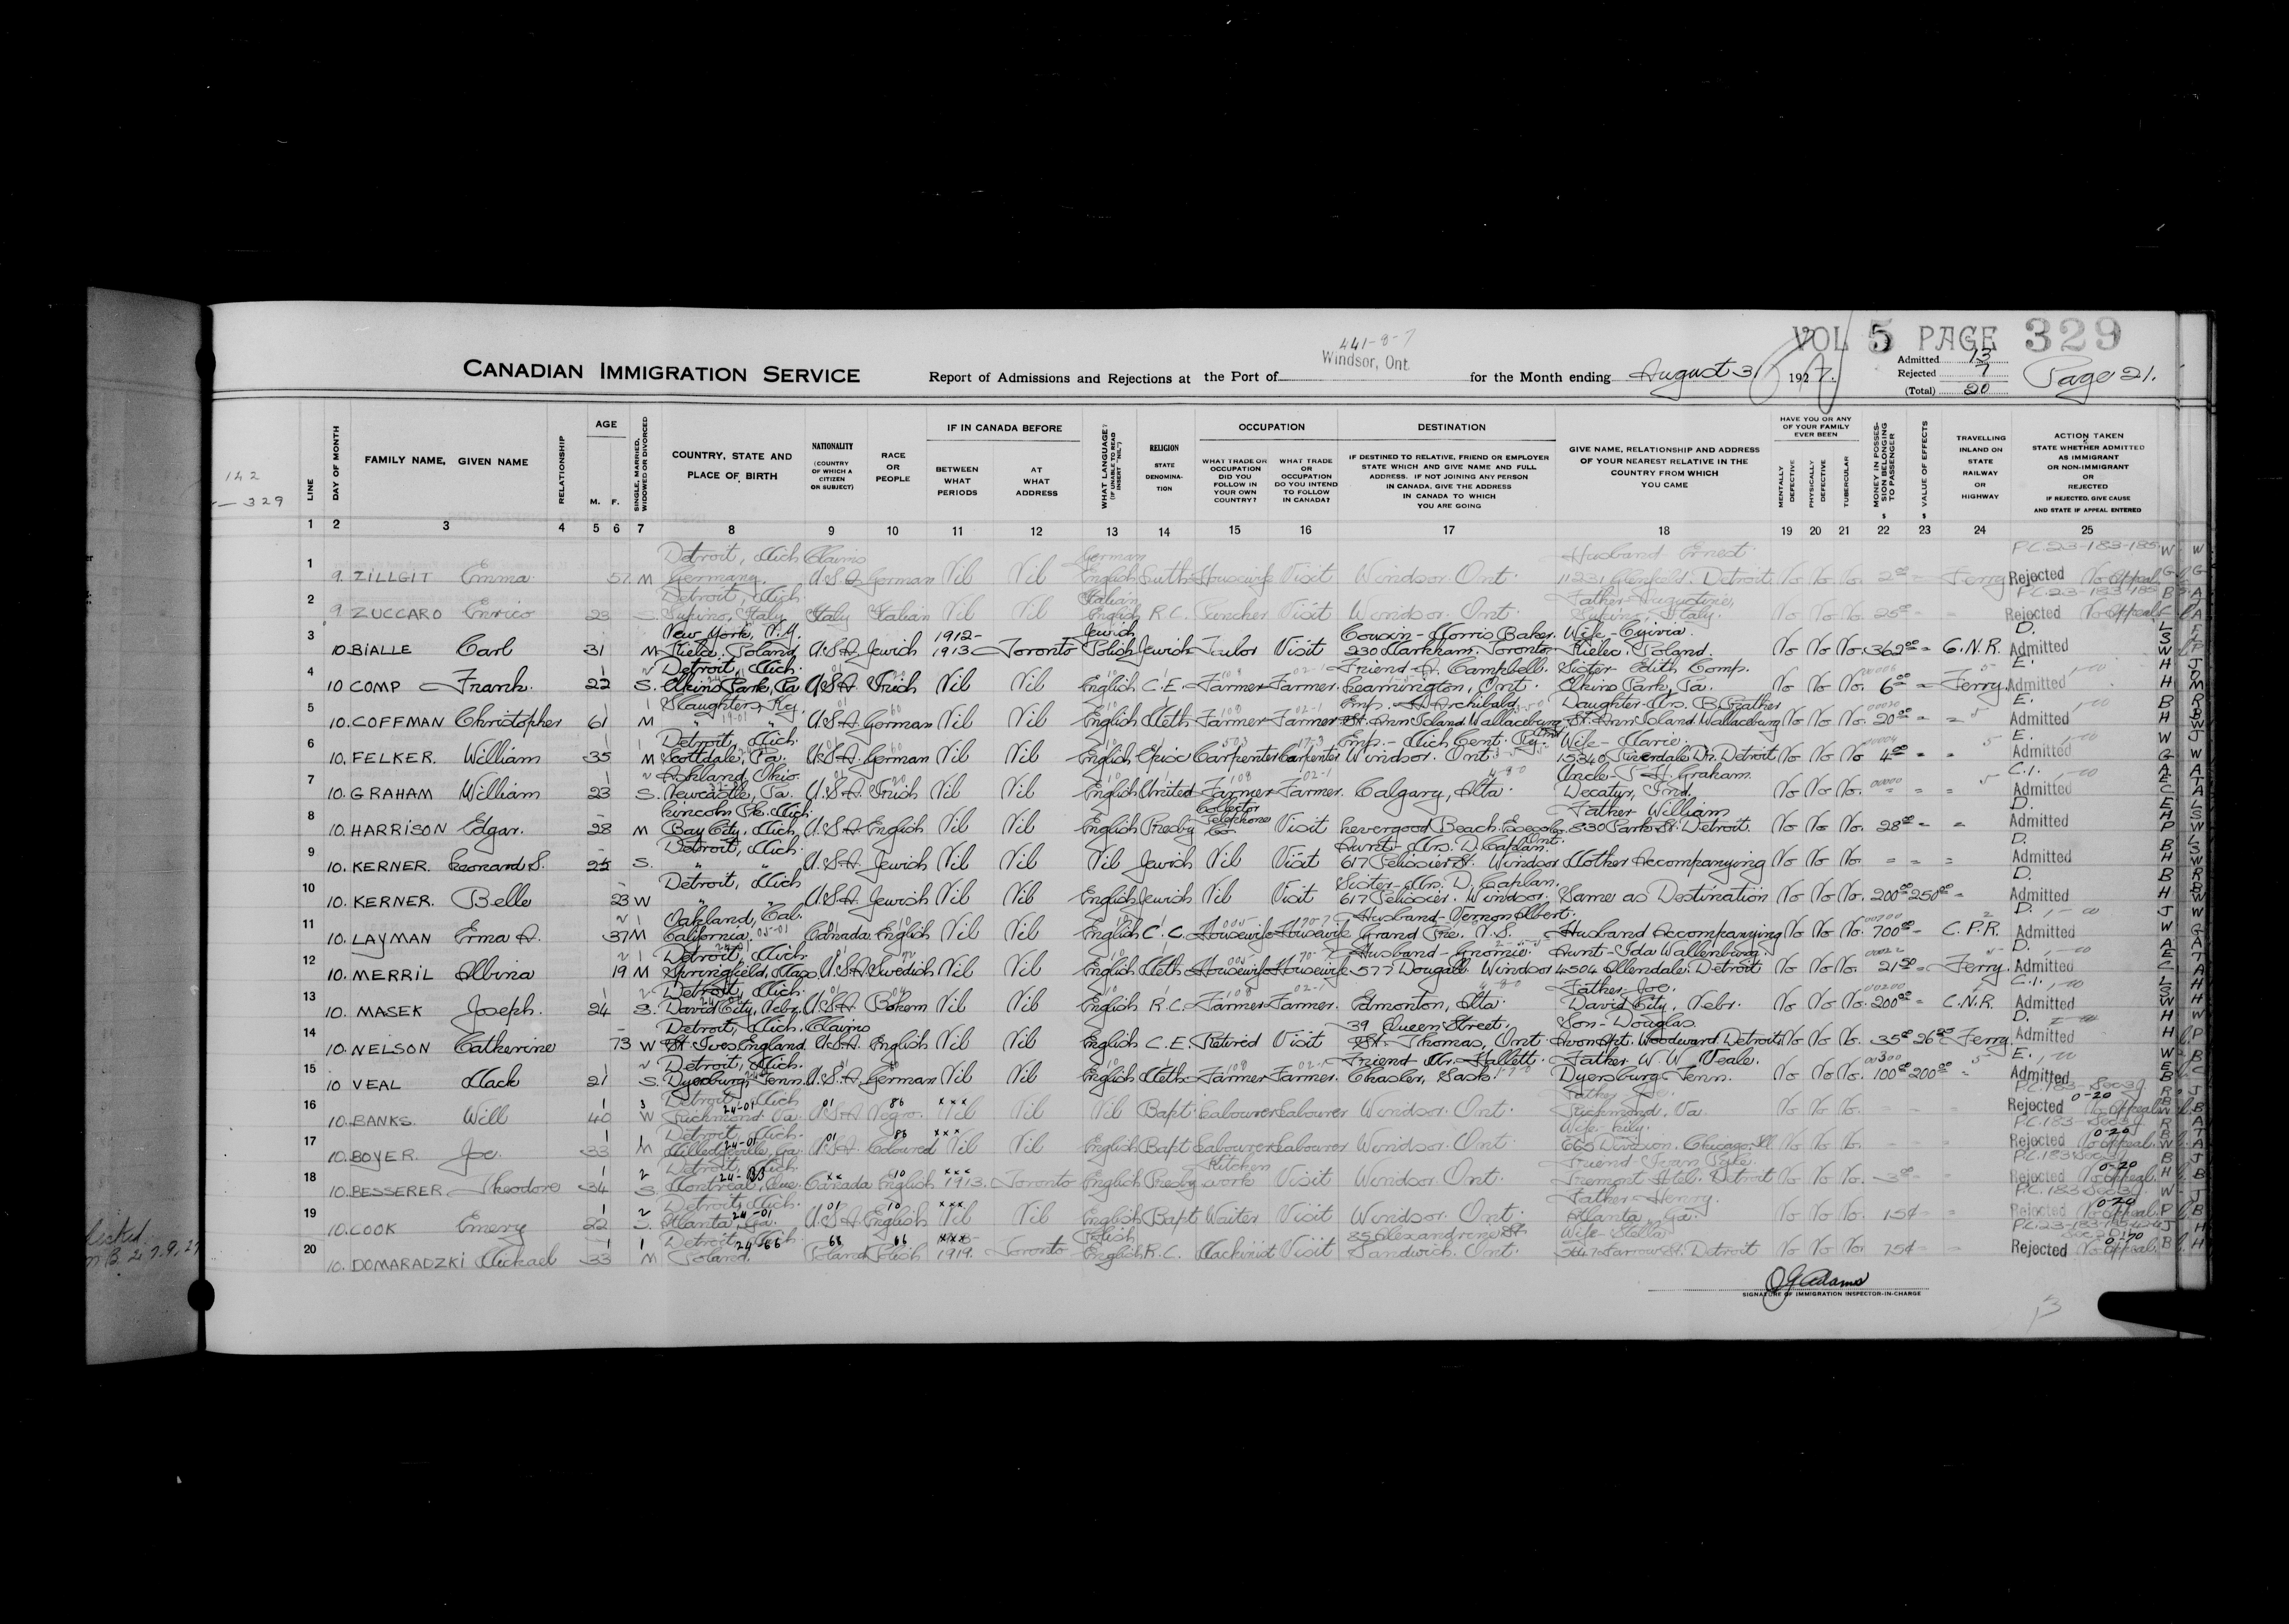 VOL 5 PAGE 329
441-8-7
Windsor, Ont.
CANADIAN IMMIGRATION SERVICE
Report of Admissions and Rejections at the Port of
for the Month ending August 31 1927.
Admitted 13
Rejected 7
(Total) 20
Page 21.
142
329
LINE
DAY OF MONTH
FAMILY NAME, GIVEN NAME
RELATIONSHIP
AGE
M. F.
SINGLE, MARRIED, WIDOWED OR DIVORCED
COUNTRY, STATE AND PLACE OF BIRTH
NATIONALITY (COUNTRY OF WHICH A CITIZEN OR SUBJECT)
RACE OR PEOPLE
IF IN CANADA BEFORE
BETWEEN WHAT PERIODS
AT WHAT ADDRESS
WHAT LANGUAGE? (IF UNABLE TO READ INSERT "NIL")
RELIGION STATE DENOMINATION
OCCUPATION
WHAT TRADE OR OCCUPATION DID YOU FOLLOW IN YOUR OWN COUNTRY?
WHAT TRADE OR OCCUPATION DO YOU INTEND TO FOLLOW IN CANADA?
DESTINATION
IF DESTINED TO RELATIVE, FRIEND OR EMPLOYER STATE WHICH AND GIVE NAME AND FULL ADDRESS. IF NOT JOINING ANY PERSON IN CANADA, GIVE THE ADDRESS IN CANADA TO WHICH YOU ARE GOING
GIVE NAME, RELATIONSHIP AND ADDRESS OF YOUR NEAREST RELATIVE IN THE COUNTRY FROM WHICH YOU CAME
HAVE YOU OR ANY OF YOUR FAMILY EVER BEEN
MENTALLY DEFECTIVE
PHYSICALLY DEFECTIVE
TUBERCULAR
MONEY IN POSSESSION BELONGING TO PASSENGER $
VALUE OF EFFECTS $
TRAVELLING INLAND ON STATE RAILWAY OR HIGHWAY
ACTION TAKEN STATE WHETHER ADMITTED AS IMMIGRANT OR NON-IMMIGRANT OR REJECTED IF REJECTED, GIVE CAUSE AND STATE IF APPEAL ENTERED
1 2 3 4 5 6 7 8 9 10 11 12 13 14 15 16 17 18 19 20 21 22 23 24 25
Detroit, Mich Claims German Husband Ernest P.C.23-183-185
1 9. ZILLGIT Emma 57 M Germany. U.S.A. German Nil Nil English Luth. Housewife Visit Windsor. Ont. 11231 Detroit No No No. 2 Ferry Rejected No Appeal
Detroit, Mich. Italian Father Augustine, P.C.23-183-185
2 9. ZUCCARO Enrico 23 S. Supino, Italy Italy Italian Nil Nil English R.C. Visit Windsor. Ont. Supino, Italy. No No No. 25 Rejected No Appeal
New York, N.Y. 1912- Jewish Cousin - Morris Baker. Wife - D.
3 10. BIALLE Carl 31 M Kielce. Poland U.S.A. Jewish 1913 Toronto Polish Jewish Tailor Visit 230 Markham. Toronto Kielec. Poland. No No No. 362 C.N.R. Admitted
Detroit, Mich. Friend A. Campbell. Sister - Edith Comp. E.
4 10 COMP Frank. 22 S. Elkins Park, Pa U.S.A. Irish Nil Nil English C.E. Farmer Farmer. Leamington, Ont. Elkins Park, Pa. No No No. 6 Ferry. Admitted
Slaughters, Ky. Emp. A. Archibald, Daughter - Mrs. B. Prather E.
5 10. COFFMAN Christopher 61 M " " U.S.A. German Nil Nil English Meth. Farmer Farmer St. Ann Island Wallaceburg St. Ann Island. Wallaceburg No No No. 20 Admitted
Detroit, Mich. Emp. - Mich Cent. Ry. Wife - Marie. E.
6 10. FELKER. William 35 M Scottdale, Pa. U.S.A. German Nil Nil English Episc Carpenter Carpenter Windsor. Ont 15340 Riverdale Dr. Detroit No No No 4 Admitted
Ashland, Ohio Uncle - P.H. Graham. C.I.
7 10. GRAHAM William 23 S. Newcastle, Pa. U.S.A. Irish Nil Nil English United Farmer Farmer. Calgary, Alta. Decatur, Ind. No No No. Admitted
Lincoln Pk. Mich. Collector Father William D.
8 10. HARRISON Edgar. 28 M Bay City, Mich. U.S.A. English Nil Nil English Presby Telephone Co Visit Levergood Beach. Essex Co. 830 Park St. Detroit. No No No. 28 Admitted
Detroit, Mich. Aunt - Mrs. D. Caplan. Ont. D.
9 10. KERNER. Leonard S. 25 S. " " U.S.A. Jewish Nil Nil Nil Jewish Nil Visit 617 Pelissier St. Windsor Mother Accompanying No No No. Admitted
Detroit, Mich Sister - Mrs. D. Caplan. D.
10 10. KERNER. Belle 23 W " " U.S.A. Jewish Nil Nil English Jewish Nil Visit 617 Pelissier. Windsor. Same as Destination No No No. 200 250 Admitted
Oakland, Cal. Husband - Vernon Albert. D.
11 10. LAYMAN Erma A. 37 M California. Canada English Nil Nil English C.C. Housewife Housewife Grand Pre. N.S. Husband Accompanying No No No. 700 C.P.R. Admitted
Detroit, Mich. Husband - Aunt - Ida Wallenburg. D.
12 10. MERRIL Albina 19 M Springfield, Mass U.S.A. Swedish Nil Nil English Meth Housewife Housewife 577 Dougall. Windsor 4504 Allendale. Detroit No No No. 21 50 Ferry. Admitted
Detroit, Mich. Father - Joe. C.I.
13 10. MASEK Joseph. 24 S. David City, Nebr. U.S.A. Bohem Nil Nil English R.C. Farmer Farmer. Edmonton, Alta. David City, Nebr. No No No. 200 C.N.R. Admitted
Detroit, Mich. Claims 39 Queen Street. Son - Douglas. D.
14 10. NELSON Catherine 73 W St Ives England. U.S.A. English Nil Nil English C.E. Retired Visit St. Thomas, Ont Woodward. Detroit No No No. 35 26 Ferry. Admitted
Detroit, Mich. Friend Mr. Hallett. Father W.W. Veale. E.
15 10 VEAL Mack 21 S. Dyersburg, Tenn. U.S.A. German Nil Nil English Meth. Farmer Farmer. Sask. Dyersburg Tenn. No No No. 100 200 Admitted
Detroit, Mich Father P.C.183-Sec3g.
16 10. BANKS. Will 40 W Richmond. Va. U.S.A. Negro. Nil Nil Nil Bapt. Labourer Labourer Windsor. Ont. Richmond, Va. No No No. Rejected No Appeal
Detroit, Mich. Wife - Lily. P.C.183-Sec3g.
17 10. BOYER. Joe. 33 M Milledgeville, Ga. U.S.A. Coloured Nil Nil English Bapt Labourer Labourer Windsor. Ont 665 Division. Chicago. Ill No No No. Rejected No Appeal.
Detroit, Mich. Kitchen Friend P.C.183 Sec3g
18 10. BESSERER Theodore 34 S. Montreal, Que. Canada English 1913. Toronto English Presby work Visit Windsor. Ont. Tremont Hotel. Detroit No No No. 3 Rejected No Appeal.
Detroit, Mich. Father - Henry. P.C.183 Sec3g.
19 10. COOK Emery 22 S. Atlanta, Ga. U.S.A. English Nil Nil English Bapt Waiter Visit Windsor. Ont. Atlanta, Ga. No No No. 15¢ Rejected No Appeal.
Detroit, Mich. Polish 85 Alexandrine St. Wife - Stella
20 10. DOMARADZKI Michael 33 M Poland. Poland Polish 1919. Toronto English R.C. Machinist Visit Sandwich. Ont. Detroit No No No. 75¢ Rejected No Appeal.
O G Adams
SIGNATURE OF IMMIGRATION INSPECTOR-IN-CHARGE
13